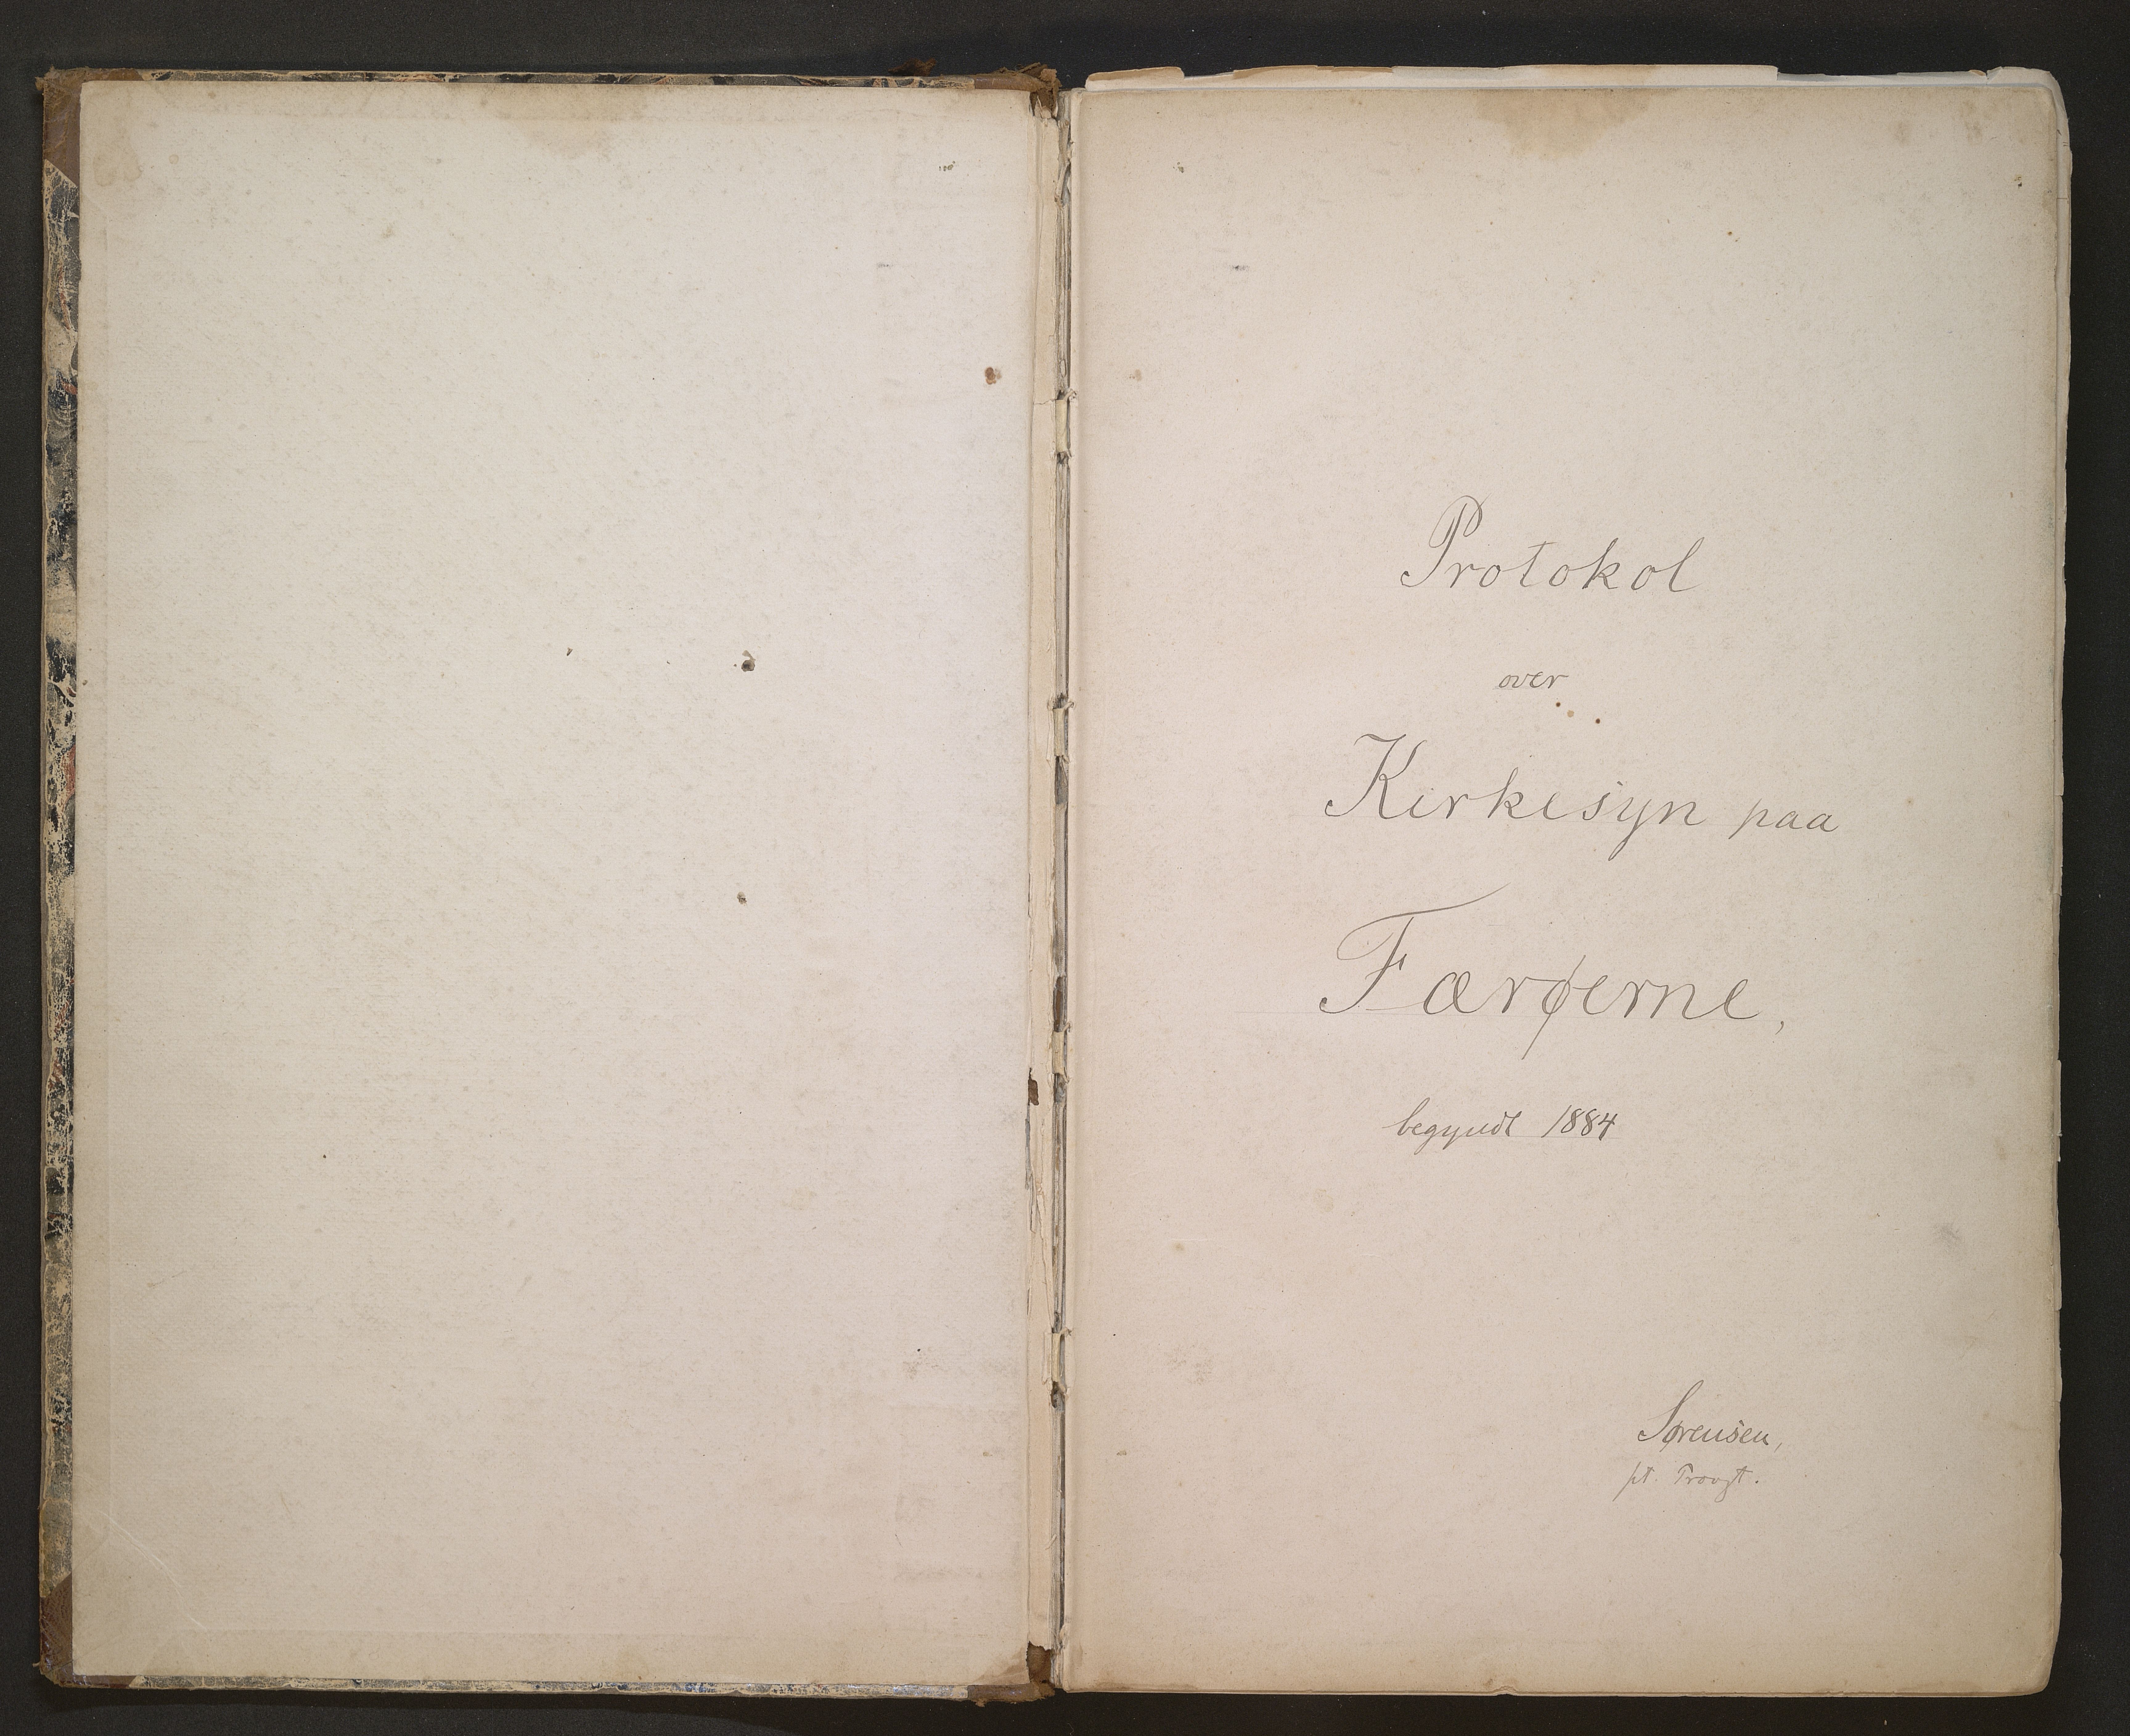 Protokol
over
Kirkesyn paa
Færøerne,
begyndt 1884
Sørensen,
pt. Provst.